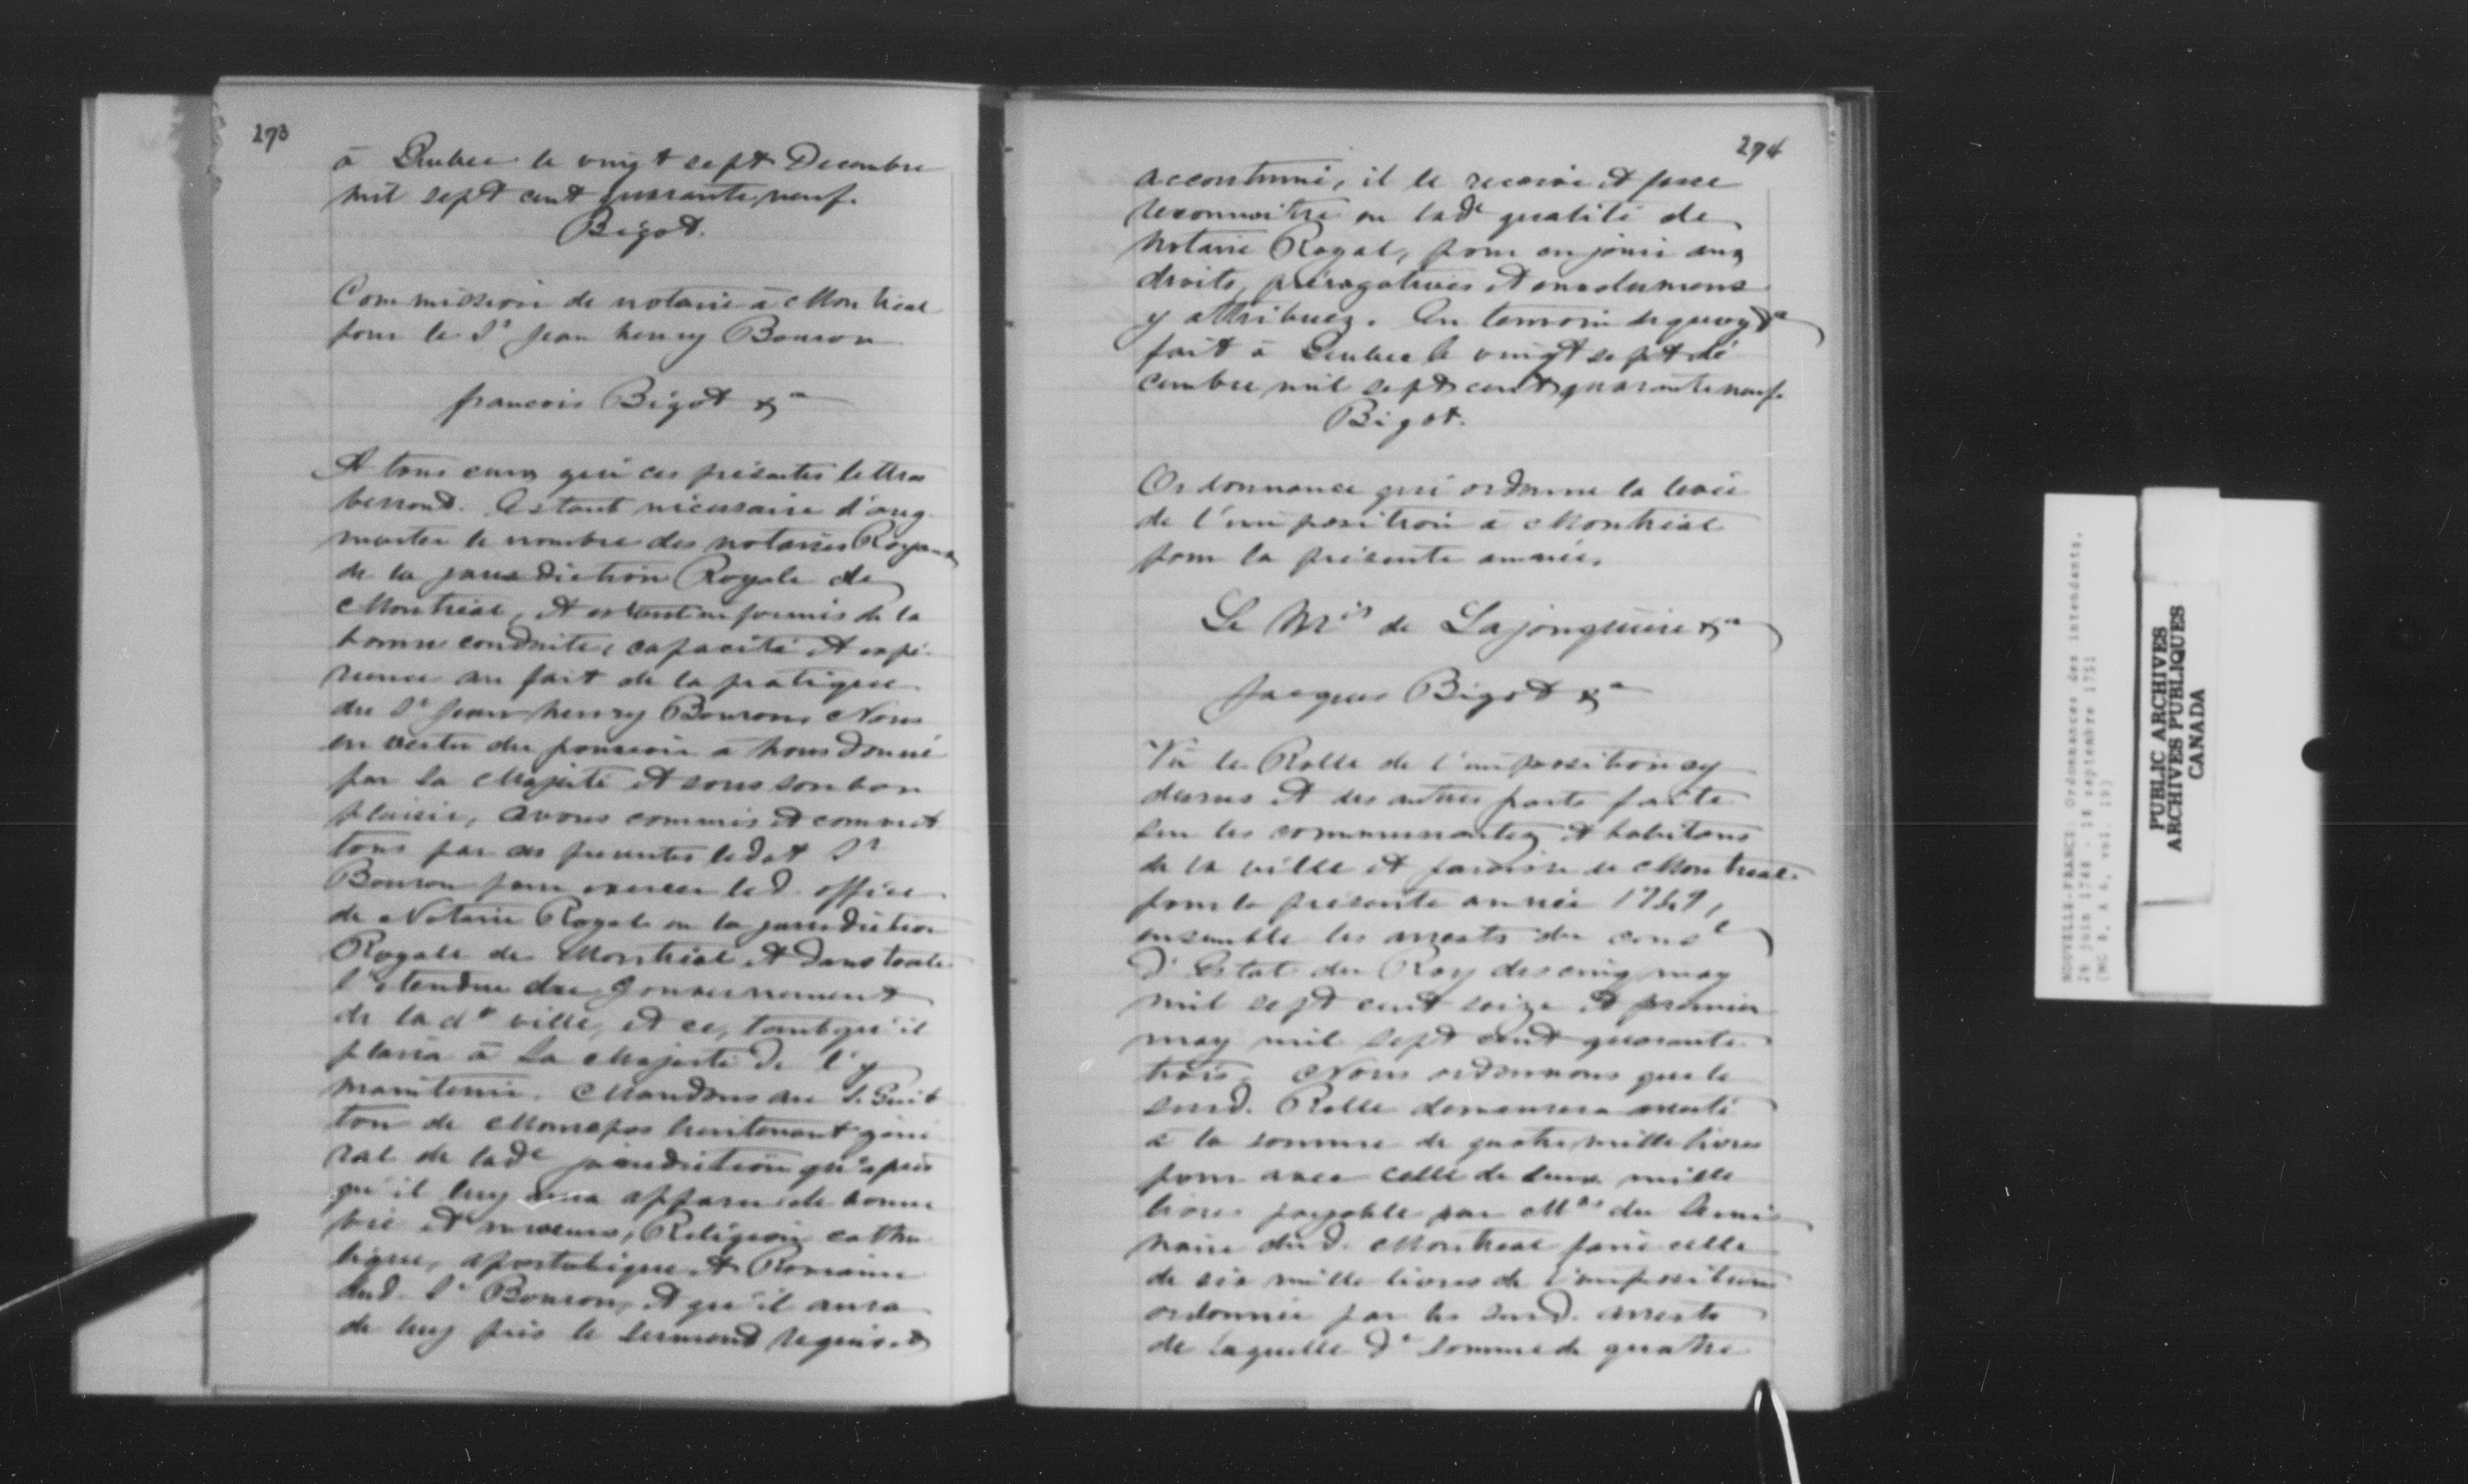 273
à Quebec le vingt sept Decembre
mil sept cent quarante neuf.
Bigot.
Commission de notaire à Montreal
pour le Sr Jean henry Bouron
francois Bigot &a
A tous ceux qui ces présentes lettres
verront. Estant nécessaire d'aug
menter le nombre des notaires Royaux
de la jurisdiction Royale de
Montréal, et estant informés de la
bonne conduite, capacité et expé
rience au fait de la pratique
du Sr Jean henry Bouron Nous
en vertu du pouvoir à nous donné
par Sa Majesté et sous son bon
plaisir, avons commis et commet
tons par ces presentes ledit Sr
Bouron pour exercer led. office
de Notaire Royal en la jurisdiction
Royale de Montréal et dans toute
l'etendue du Gouvernement
de lade ville, et ce, tant qu'il
plaira à Sa Majesté de l'y
maintenir. Mandons au S. Guit
ton de Monrepos lieutenant géné
ral de lade jurisdiction qu'après
qu'il luy aura apparu de bonne
vie et moeurs, Religion catho
lique, apostolique et Romaine
dud. Sr Bouron, et qu'il aura
de luy pris le serment requis et
274
accoutumé, il le reçoive et fasse
reconnoitre en lade qualité de
notaire Royal, pour en jouir aux
droits, prérogatives et emolumens
y attribuez. En temoin de quoy &a
fait à Quebec le vingt sept dé
cembre mil sept cent quarante neuf.
Bigot.
Ordonnance qui ordonne la levée
de l'imposition à Montréal
pour la présente année.
Le Mis de Lajonquière &a
Jacques Bigot &a
Vû le Rolle de l'imposition cy
dessus et des autres parts faite
sur les communautez et habitans
de la ville et paroisse de Montreal
pour la présente année 1749,
ensemble les arrests du consl
d'Estat du Roy des cinq may
mil sept cent seize et premier
may mil sept cent quarante
trois. Nous ordonnons que le
susd. Rolle demeurera aresté
à la somme de quatre mille livres
pour avec celle de deux mille
livres payable par Mrs du Semi
naire dud. Montreal faire celle
de six mille livres de l'imposition
ordonnée par les susd. arrests
de laquelle de somme de quatre
NOUVELLE-FRANCE. Ordonnances des intendants.
PUBLIC ARCHIVES
ARCHIVES PUBLIQUES
CANADA